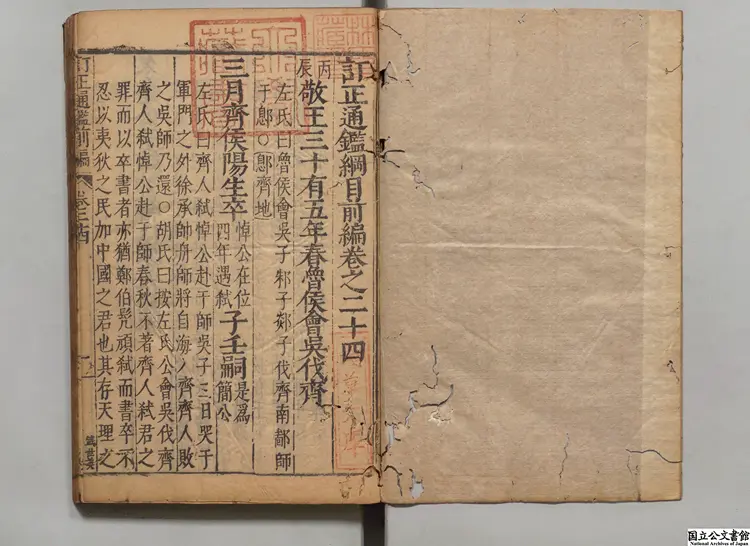 訂正通鑑綱目前編卷之二十四
丙辰
敬王三十有五年春魯侯會吳伐齊
左氏曰魯侯會吳子邾子郯子伐齊南鄙師
于鄎〇鄎齊地
三月齊侯陽生卒 悼公在位四年遇弒 子壬嗣 是爲簡公
左氏曰齊人弒悼公赴于師吳子三日哭于
軍門之外徐承帥舟師將自海入齊齊人敗
之吳師乃還〇胡氏曰按左氏公會吳伐齊
齊人弒悼公赴于師春秋不著齊人弒君之
罪而以卒書者亦猶鄭伯髡頑弒而書卒不
忍以夷狄之民加中國之君也其存天理之
訂正通鑑前編
卷二十四
一
国立公文書館
National Archives of Japan